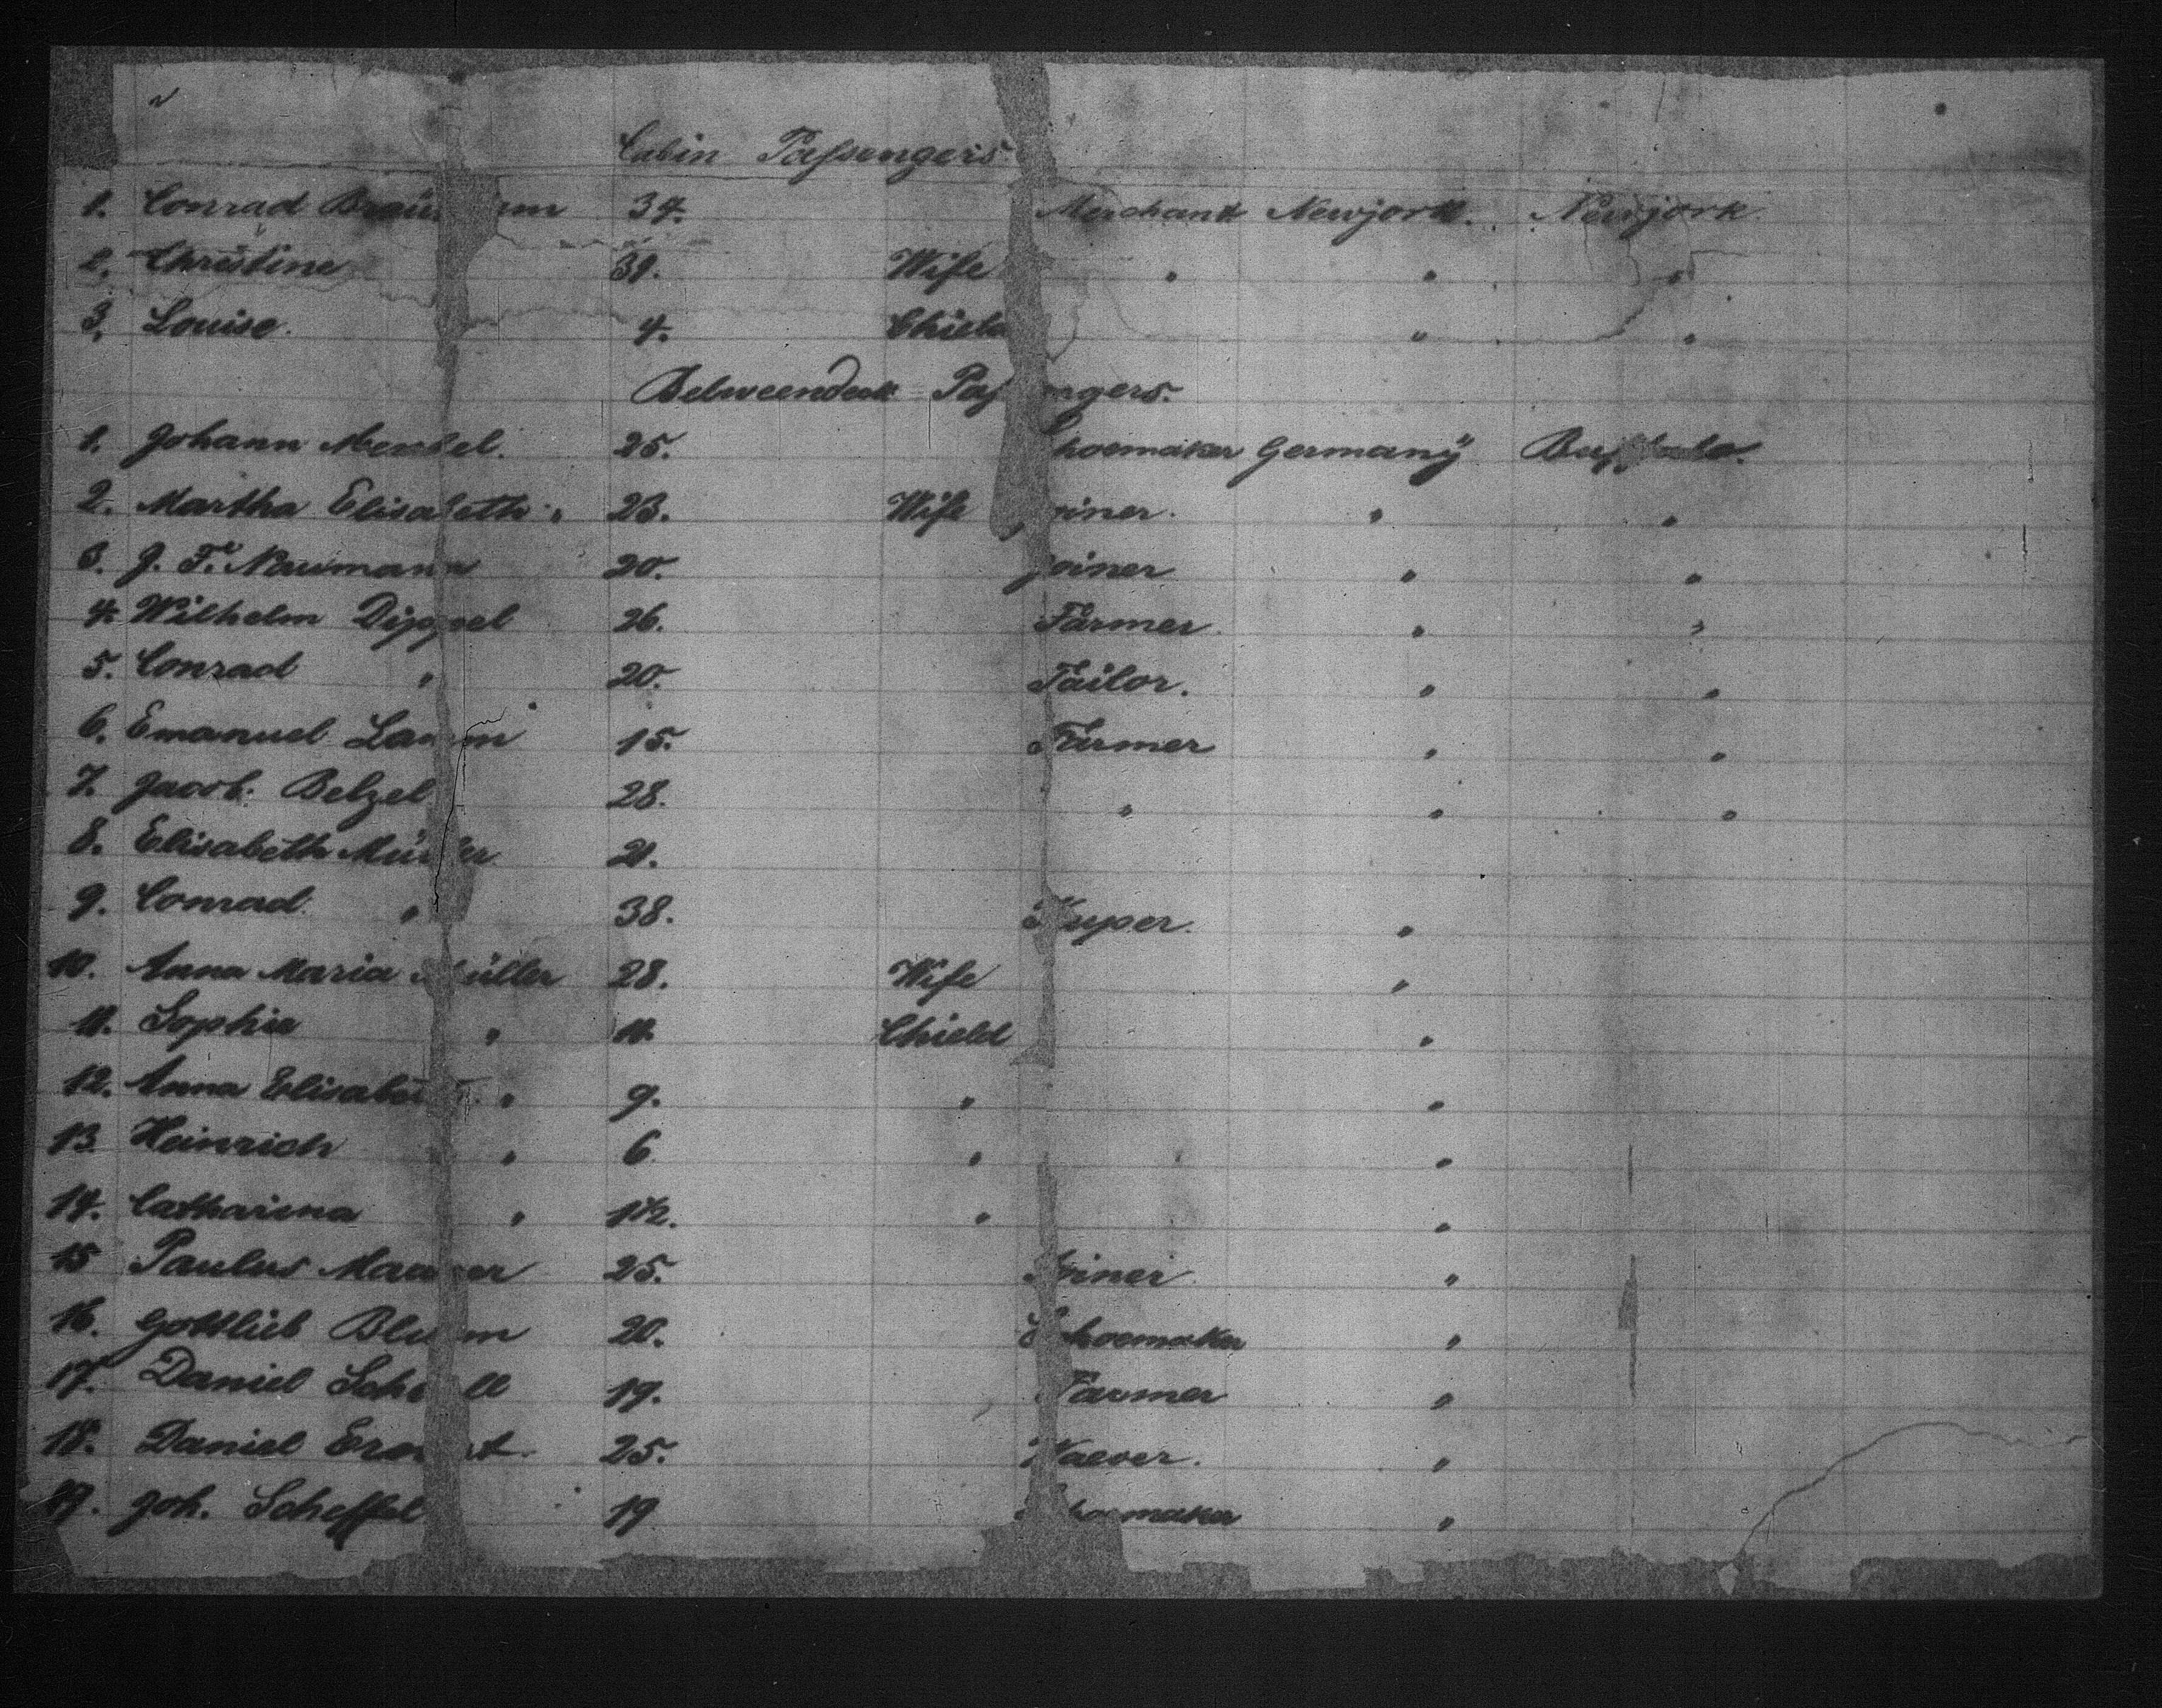 Cabin Passengers
1. Conrad 34. Merchant Newjork. Newjork
2. Christine 31. Wife " " "
3. Louise. 4. Chield " "
Betweendeck Passengers.
1. Johann 25. Shoemaker Germanÿ Buffalo.
2. Martha Elisabeth " 23. Wife Joiner. " "
3. J. Fr. Naumann 20. Joiner " "
4. Wilhelm Dippel 26. Farmer. " "
5. Conrad " 20. Tailor. " "
6. Emanuel 15. Farmer " "
7. Jacob. Belzel 28. " " "
8. Elisabeth Müller 21.
9. Conrad. " 38. Kuper. "
10. Anna Maria Müller 28. Wife "
11. Sophia " 11. Chield "
12. Anna Elisabeth. " 9. " "
13. Heinrich " 6 " "
14. Catharina " 1 1/2. " "
15 Paulus 25. Joiner. "
16. Gottlieb Blumm 20. Shoemaker "
17. Daniel 19. Farmer "
18. Daniel 25. Waever. "
19. Joh. Scheffel 19 Shoemaker "